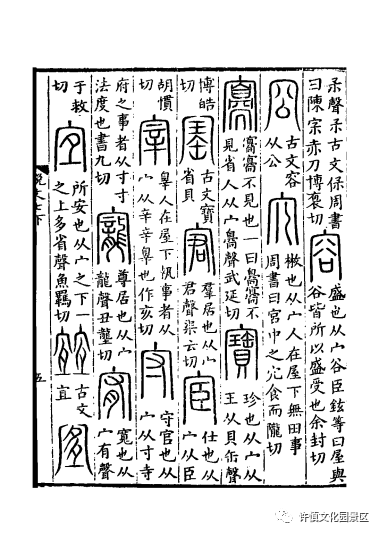 𣎼聲𣎼古文保周書
曰陳宲赤刀博褒切
容
盛也从宀谷臣鉉等曰屋與
谷皆所以盛受也余封切
㝐
古文容
从公
宂
㪔也从宀人在屋下無田事
周書曰宮中之宂食而隴切
㝰㝰不見也一曰㝰㝰不
見省人从宀𦤝聲武延切
寶
珍也从宀从
王从貝缶聲
博皓
切
古文寶
省貝
宭
羣居也从宀
君聲渠云切
宦
仕也从
宀从臣
胡慣
切
宰
辠人在屋下執事者从
宀从辛辛辠也作亥切
守
守官也从
宀从寸寺
府之事者从寸寸
法度也書九切
寵
尊居也从宀
龍聲丑壟切
宥
寬也从
宀有聲
于救
切
宜
所安也从宀之下一
之上多省聲魚羈切
古文
宜
說文七下
五
许慎文化园景区